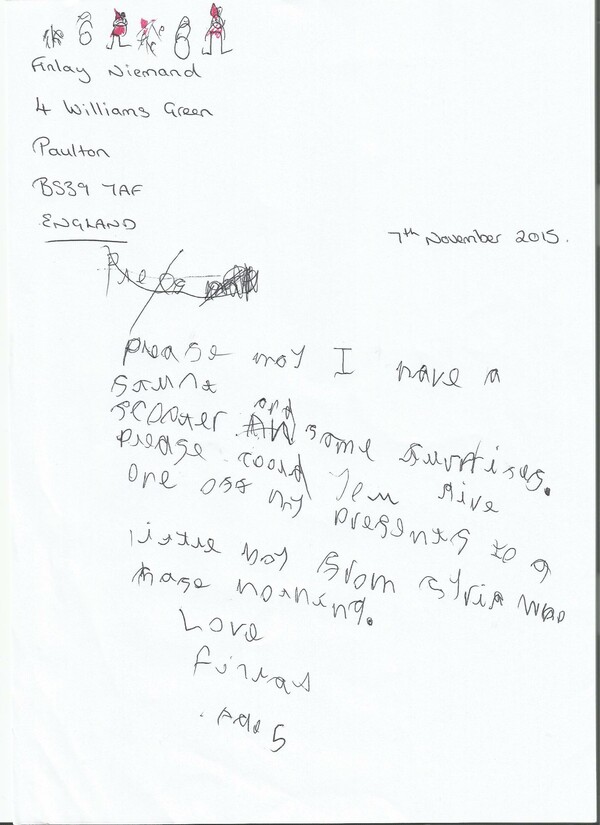 Finlay Niemand
4 Williams Green
Paulton
BS39 7AF
ENGLAND
7th November 2015.
please may I have a
stunt
scooter and some surprises.
please could you give
one off my presents to a
little boy from syria who
hase nothing.
Love
Finlay
age 5